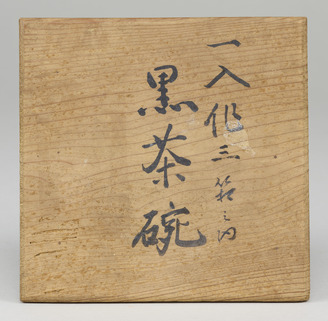 一入作 三箱之内
黒茶碗